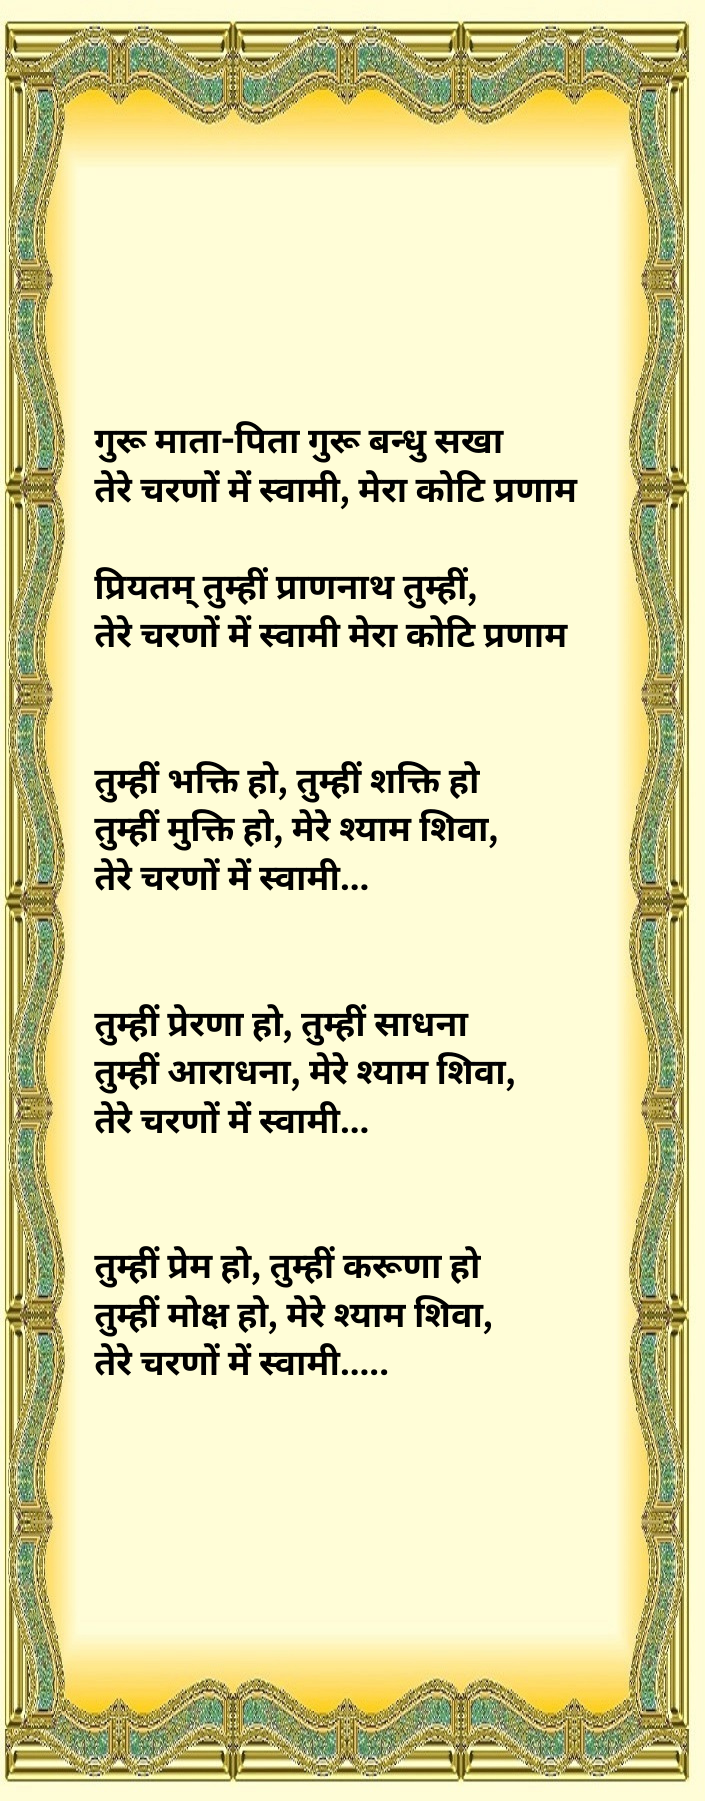 गुरू माता-पिता गुरू बन्धु सखा
तेरे चरणों में स्वामी, मेरा कोटि प्रणाम
प्रियतम् तुम्हीं प्राणनाथ तुम्हीं,
तेरे चरणों में स्वामी मेरा कोटि प्रणाम
तुम्हीं भक्ति हो, तुम्हीं शक्ति हो
तुम्हीं मुक्ति हो, मेरे श्याम शिवा,
तेरे चरणों में स्वामी...
तुम्हीं प्रेरणा हो, तुम्हीं साधना
तुम्हीं आराधना, मेरे श्याम शिवा,
तेरे चरणों में स्वामी...
तुम्हीं प्रेम हो, तुम्हीं करूणा हो
तुम्हीं मोक्ष हो, मेरे श्याम शिवा,
तेरे चरणों में स्वामी.....